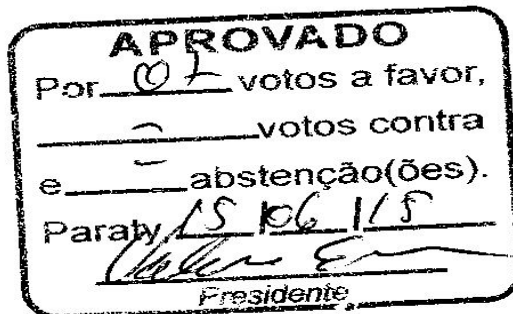 APROVADO
Por 07 votos a favor,
- votos contra
e - abstenção(ões).
Paraty 15/06/15
Presidente